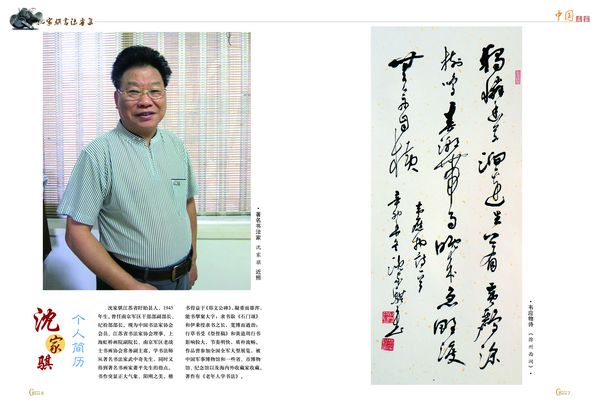 沈家骐书法艺术
中国
著名书法家 沈家骐 近照
沈家骐
个人简历
沈家骐江苏省盱眙县人，1945
年生。曾任南京军区干部部副部长、
纪检部部长。现为中国书法家协会
会员、江苏省书法家协会理事、上
海虹桥画院副院长、南京军区老战
士书画协会常务副主席。学书法师
从著名书法家武中奇先生，同时又
得到著名书画家萧平先生的指点。
书作突显正大气象、阳刚之美。楷
书得益于《郑文公碑》，凝重而雄浑，
能书擘窠大字；隶书取《石门颂》
和伊秉绶隶书之长，宽博而遒劲；
行草书受《祭侄稿》和黄道周行书
影响较大，节奏明快、质朴流畅。
作品曾参加全国全军大型展览，被
中国军事博物馆和一些省、市博物
馆、纪念馆以及海内外收藏家收藏。
著作有《老年人学书法》。
独怜幽草涧边生 上有黄鹂深
树鸣 春潮带雨晚来急 野渡
无人舟自横
韦应物诗《滁州西涧》